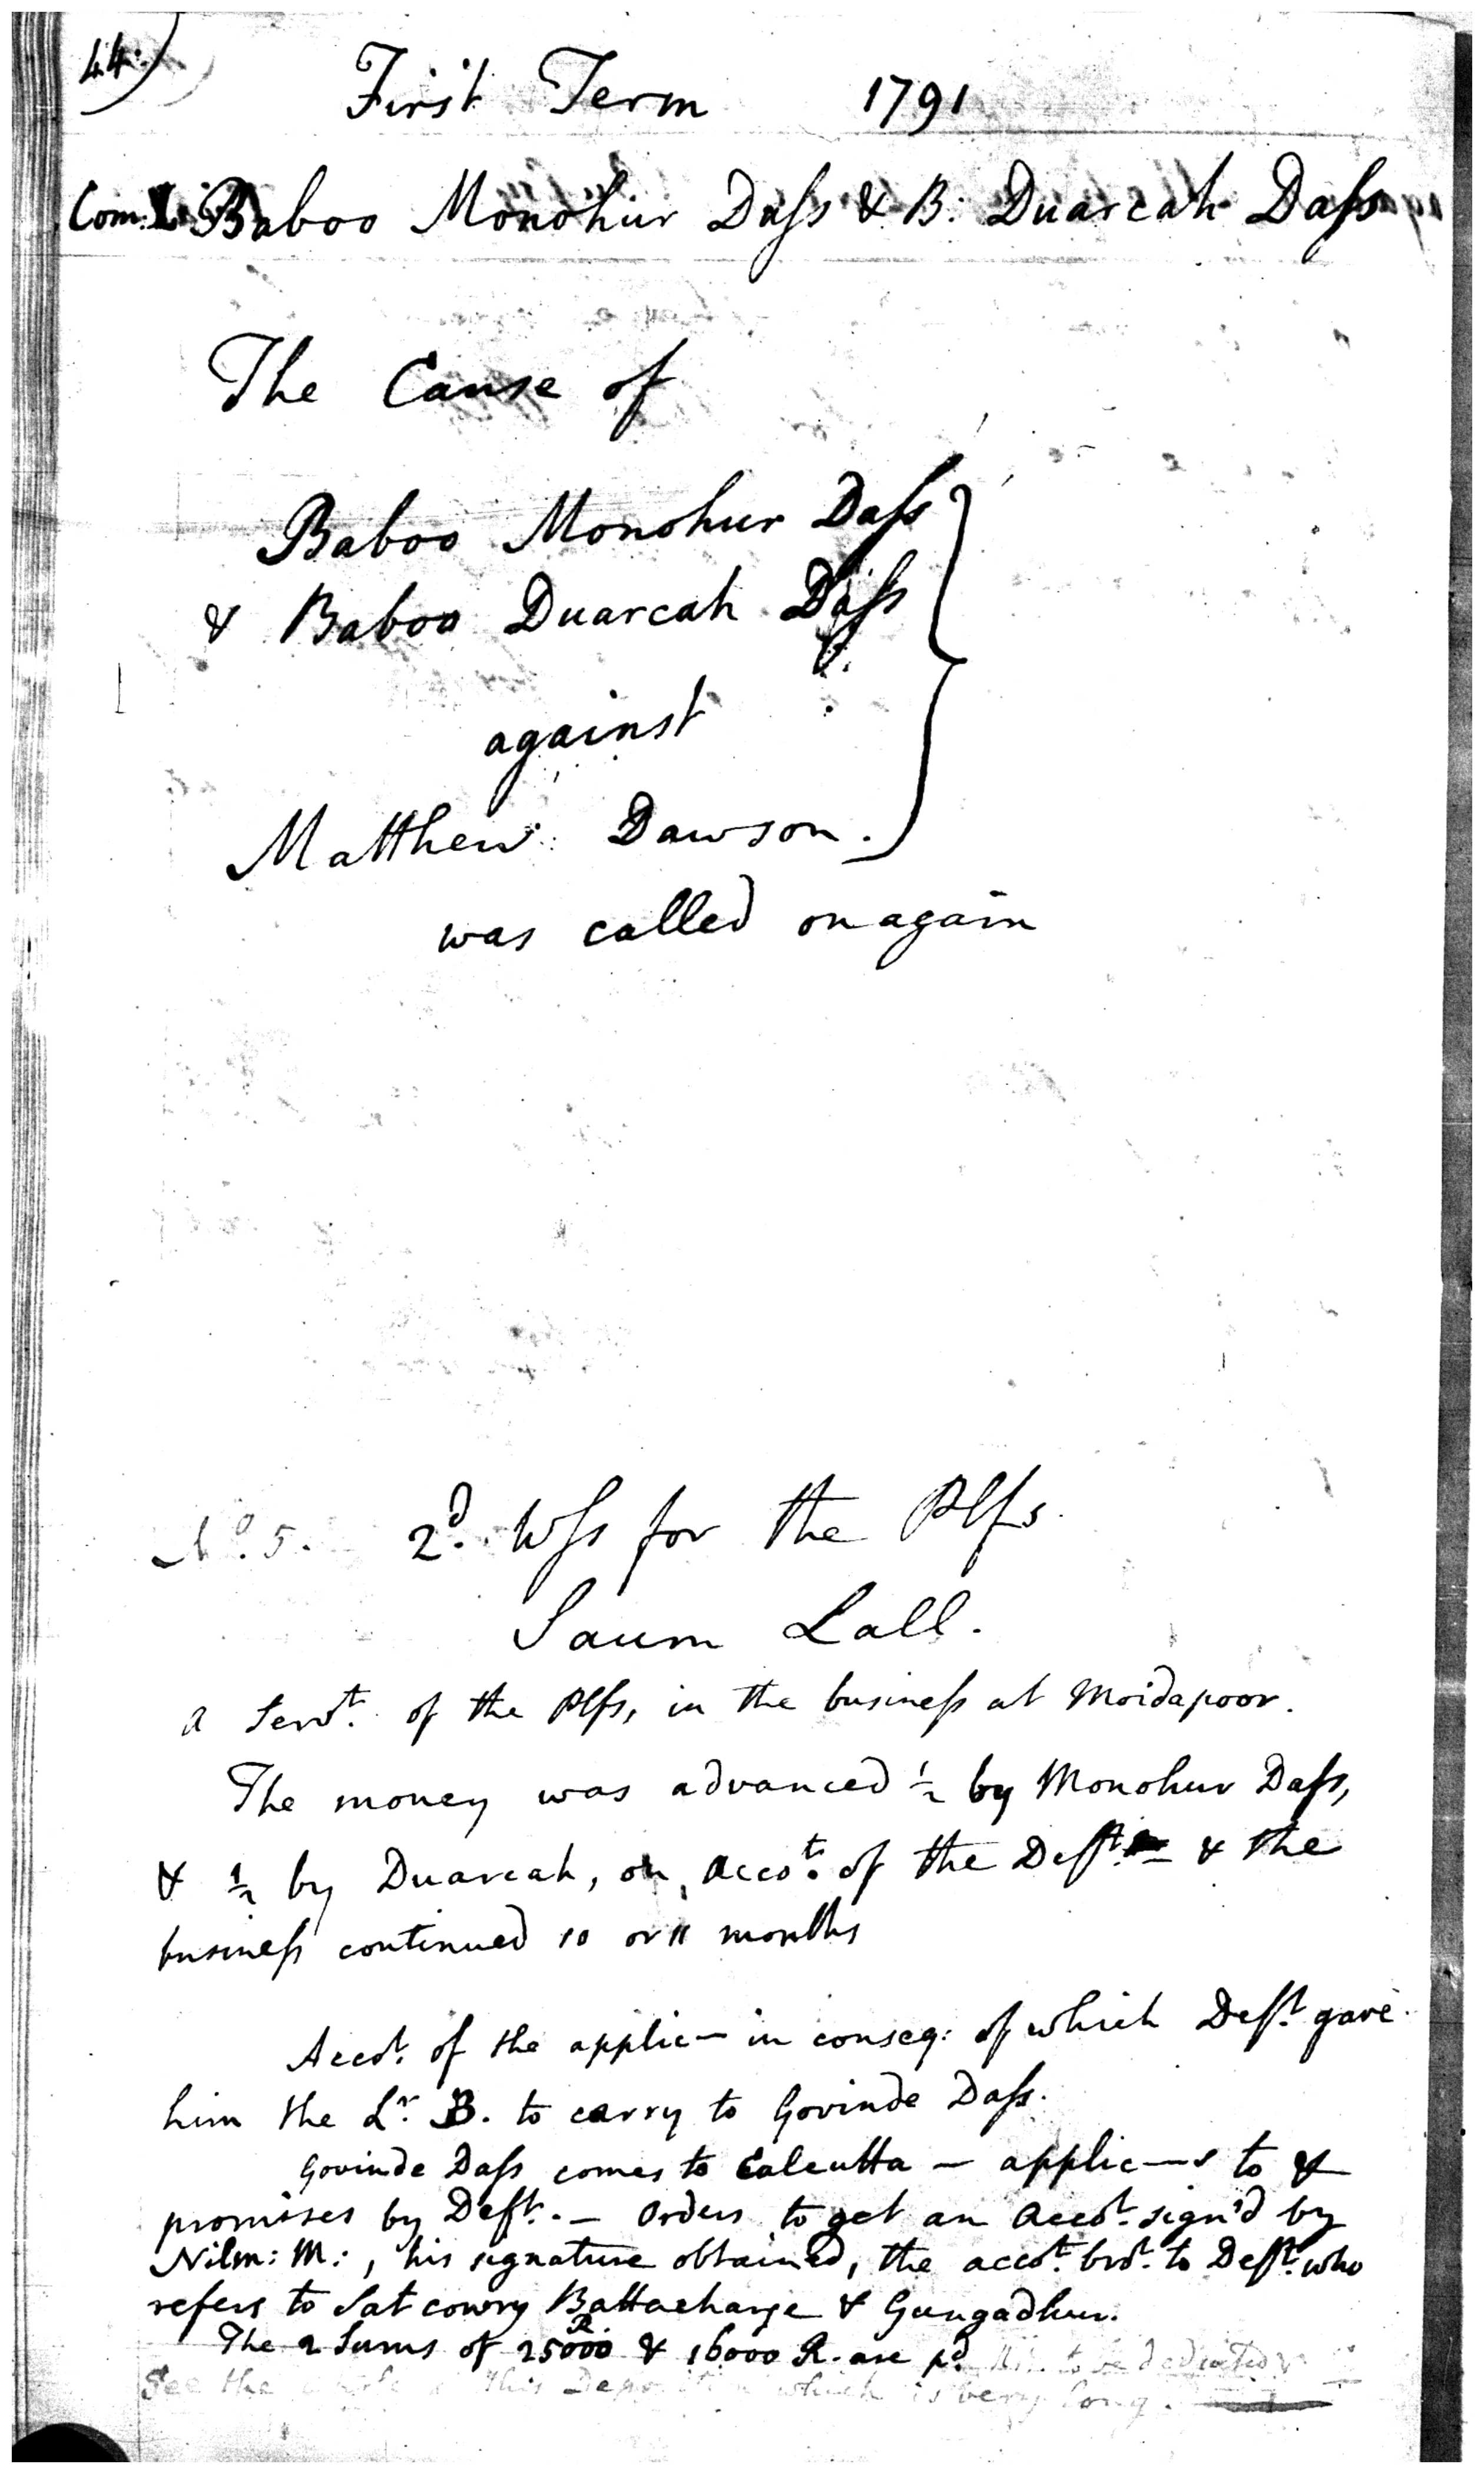 44.)
First Term 1791
Com: L: Baboo Monohur Daſs & B: Duarcah Daſs
The Cause of
Baboo Monohur Daſs
& Baboo Duarcah Daſs
against
Matthew Dawson.
was called on again
No. 5. 2d. Wſs for the Plfs.
Saum Lall.
a Servt. of the Plfs, in the buſineſs at Moidapoor.
The money was advanced ½ by Monohur Daſs,
& ½ by Duarcah, on Accot. of the Deft. & the
businefs continued 10 or 11 months
Accot. of the applic— in conseq: of which Deft. gave
him the Lr. B. to carry to Govinde Daſs.
Govinde Daſs comes to Calcutta — applic—s to &
promises by Deft. — Orders to get an Accot. sign'd by
Nilm: M:, his signature obtained, the accot. brot. to Deft. who
refers to Sat cowry Battacharje & Gungadhur.
The 2 Sums of 25000 R. & 16000 R. are pd. to be deducted
See the this Deposit which is very long.